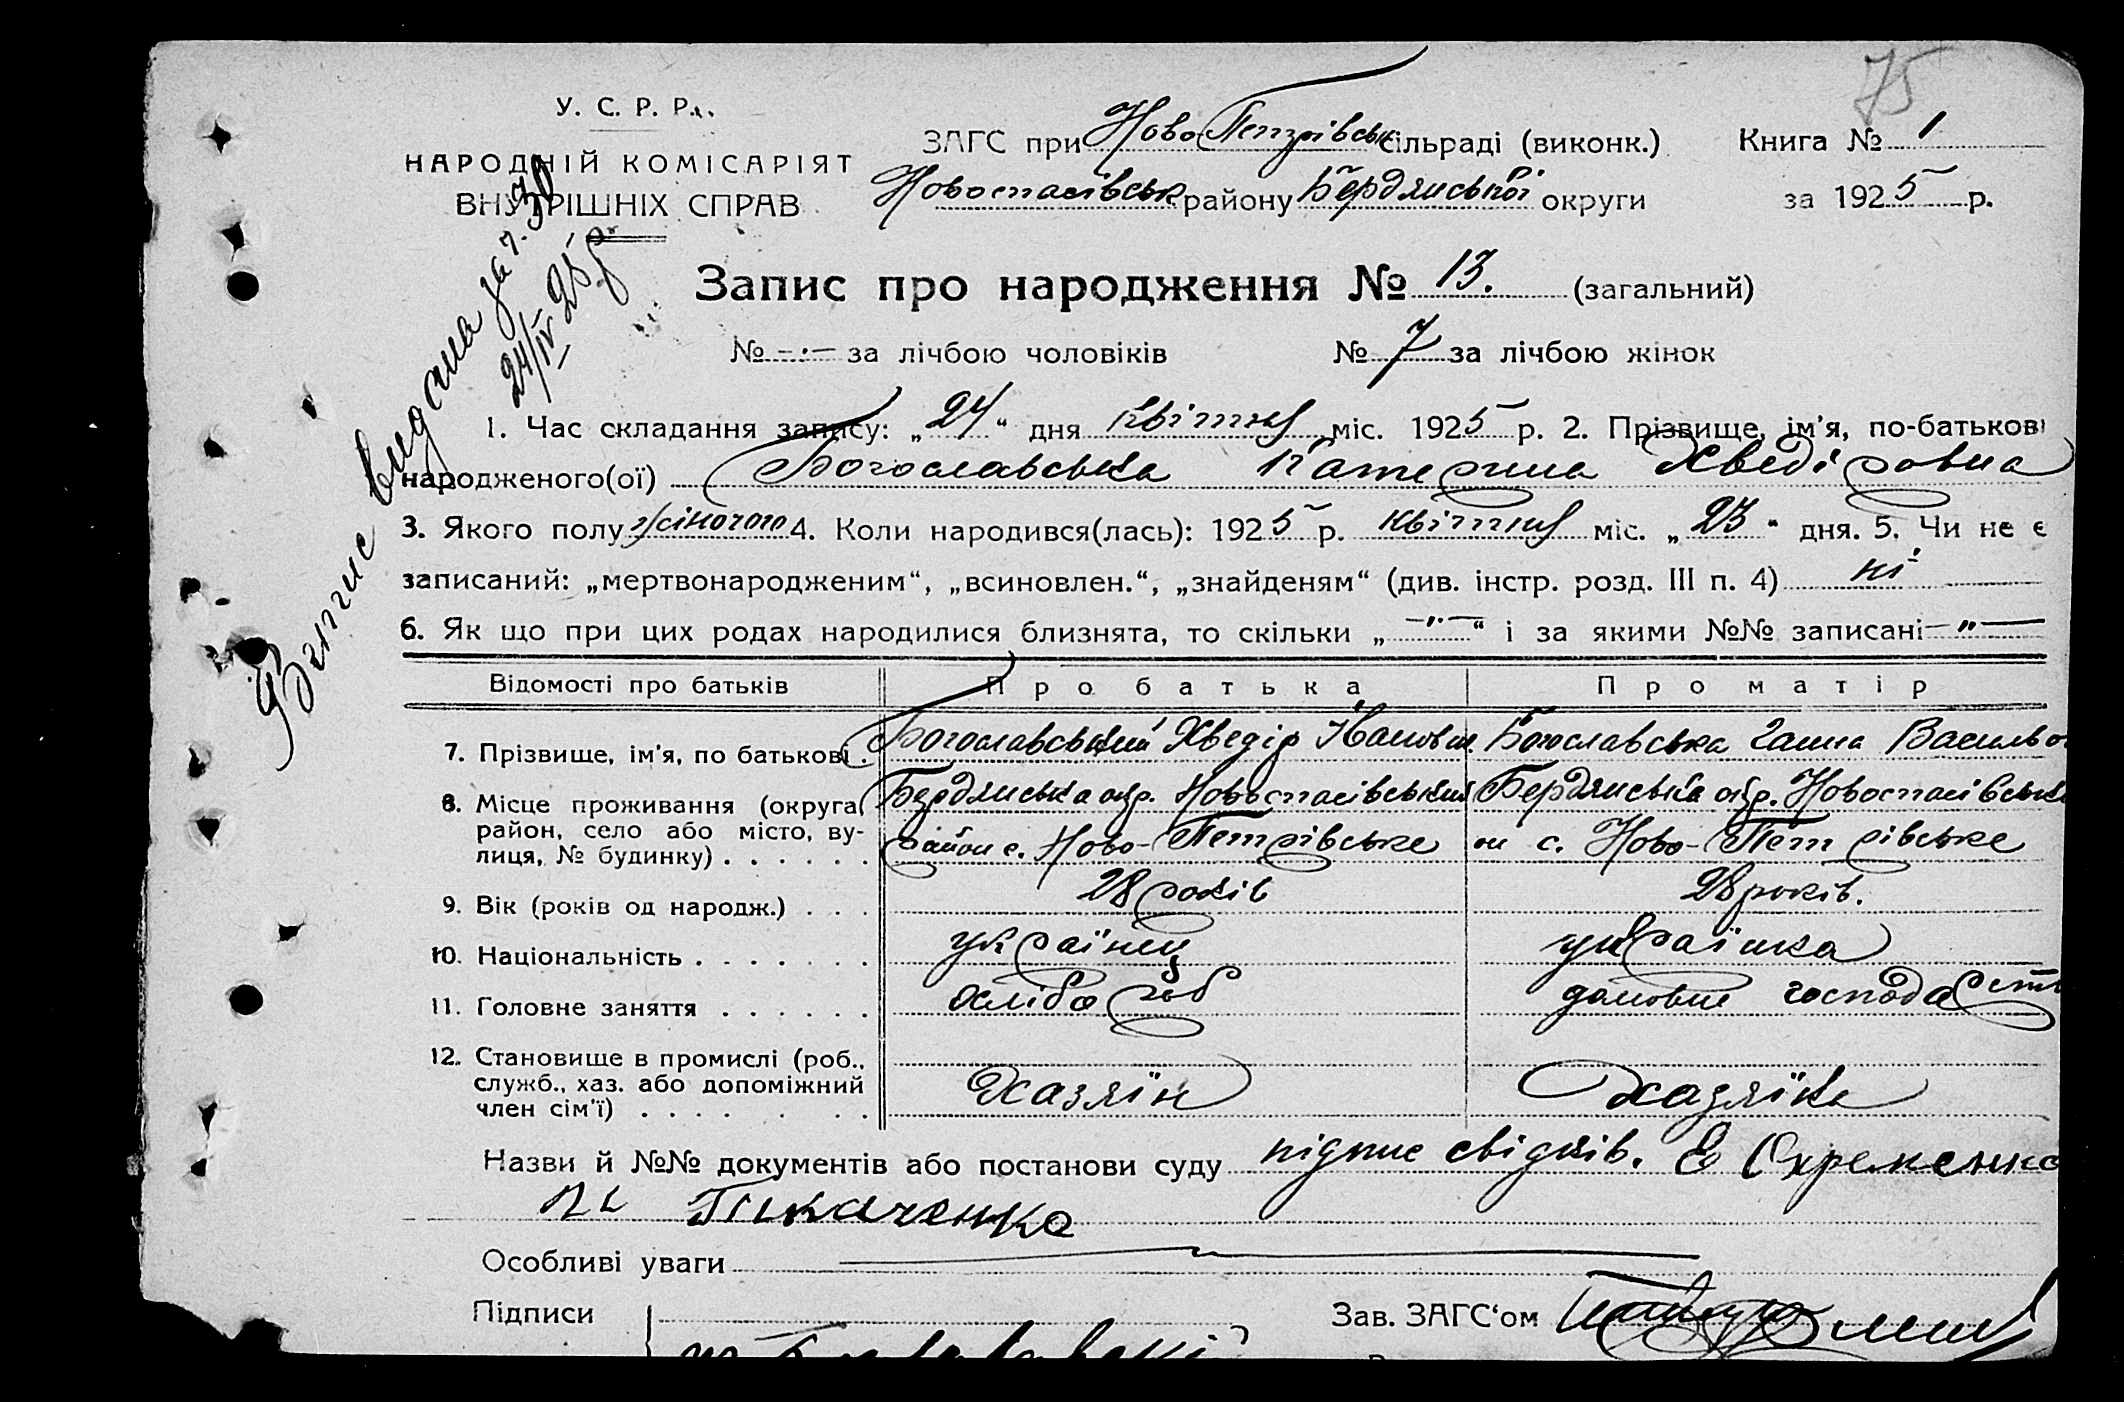 75
У. С. Р. Р.
НАРОДНІЙ КОМІСАРІЯТ
ВНУТРІШНІХ СПРАВ
ЗАГС при Ново Петрівськ сільраді (виконк.) Книга № 1
Новоспасівськ району Бердянської округи за 1925 р.
Випис видана за ч. 30
24/IV 25 р.
Запис про народження № 13. (загальний)
№ -.- за лічбою чоловіків № 7 за лічбою жінок
1. Час складання запису: „24“ дня квітня міс. 1925 р. 2. Прізвище, ім'я, по-батькові
народженого(ої) Богославська Катерина Хведіровна
3. Якого полу жіночого 4. Коли народився(лась): 1925 р. квітня міс. „23“ дня. 5. Чи не є
записаний: „мертвонародженим“, „всиновлен.“, „знайденям“ (див. інстр. розд. III п. 4) ні
6. Як що при цих родах народилися близнята, то скільки „—"—“ і за якими №№ записані —"—
Відомості про батьків Про батька Про матір
7. Прізвище, ім'я, по батькові . Богославський Хведір Іванов Богославська Ганна Васильо
8. Місце проживання (округа, район, село або місто, вулиця, № будинку) . . . . . . Бердянська окр. Новоспасівський Бердянська окр. Новоспасівськ
район с. Ново-Петрівське он с. Ново-Петрівське
9. Вік (років од народж.) . . . 28 років 28 років.
10. Національність . . . . . . . українец українка
11. Головне заняття . . . . . . хлібороб домовне господарств
12. Становище в промислі (роб., служб., хаз. або допоміжний член сім'ї) . . . . . . . Хазяїн Хазяйка
Назви й №№ документів або постанови суду підпис свідків. Е Охременко
Ткаченко
Особливі уваги
Підписи Зав. ЗАГС‘ом